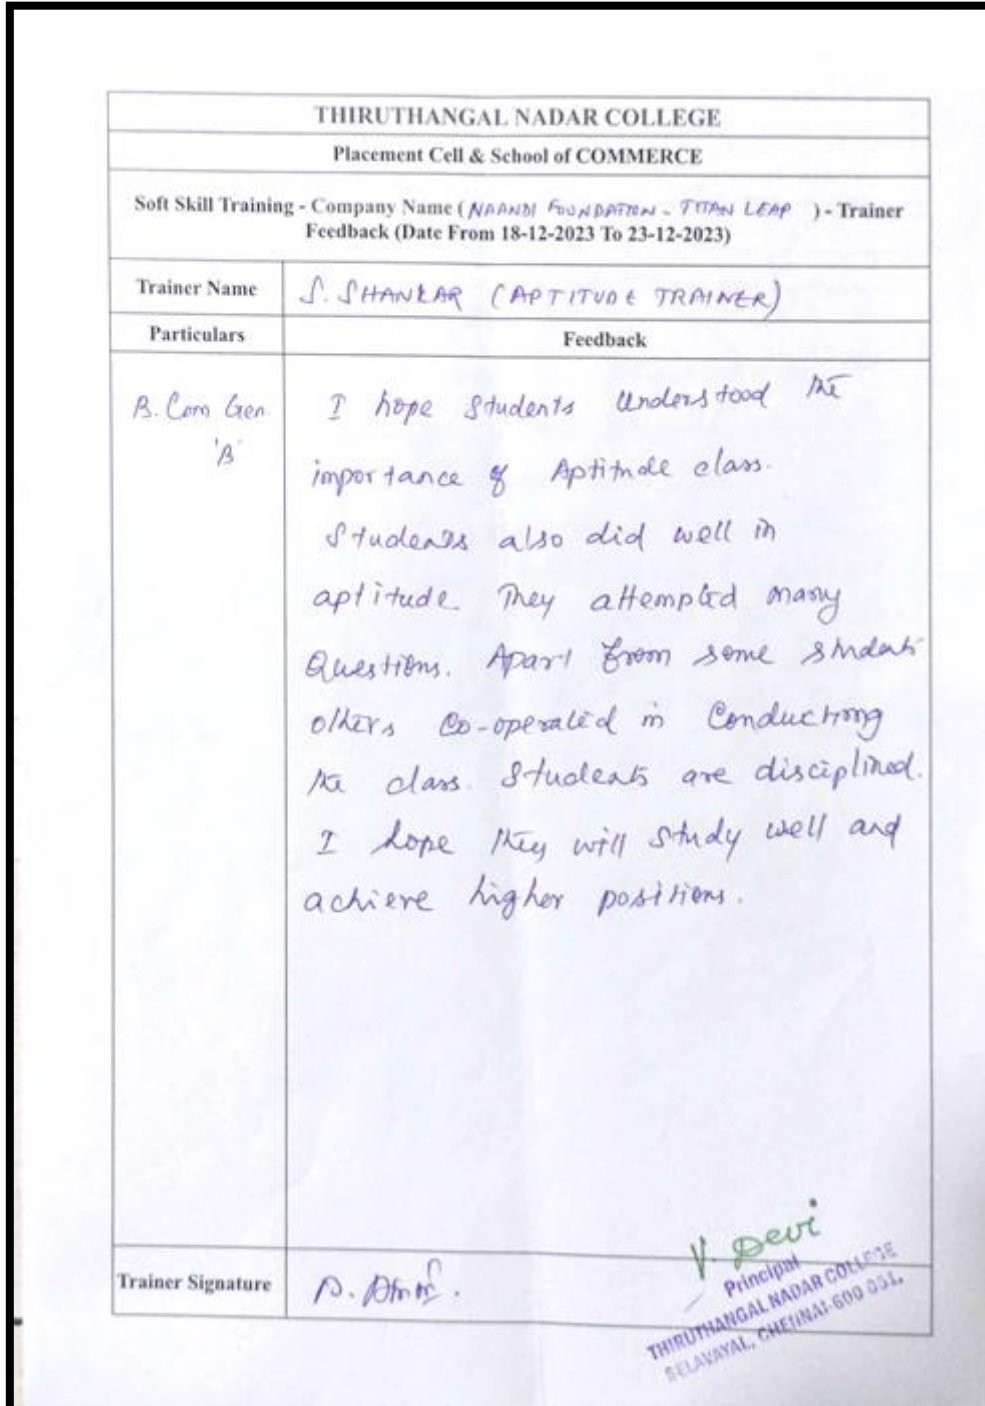 THIRUTHANGAL NADAR COLLEGE
Placement Cell & School of COMMERCE
Soft Skill Training - Company Name ( NAANDI FOUNDATION - TITAN LEAP ) - Trainer
Feedback (Date From 18-12-2023 To 23-12-2023)
Trainer Name
S. SHANKAR (APTITUDE TRAINER)
Particulars
Feedback
B. Com Gen
'B'
I hope Students Understood the
importance of Aptitude class.
Students also did well in
aptitude. They attempted many
Questions. Apart from some students
others Co-operated in Conducting
the class. Students are disciplined.
I hope they will study well and
achieve higher positions.
Trainer Signature
V. Devi
Principal
THIRUTHANGAL NADAR COLLEGE
SELAVAYAL, CHENNAI-600 051.